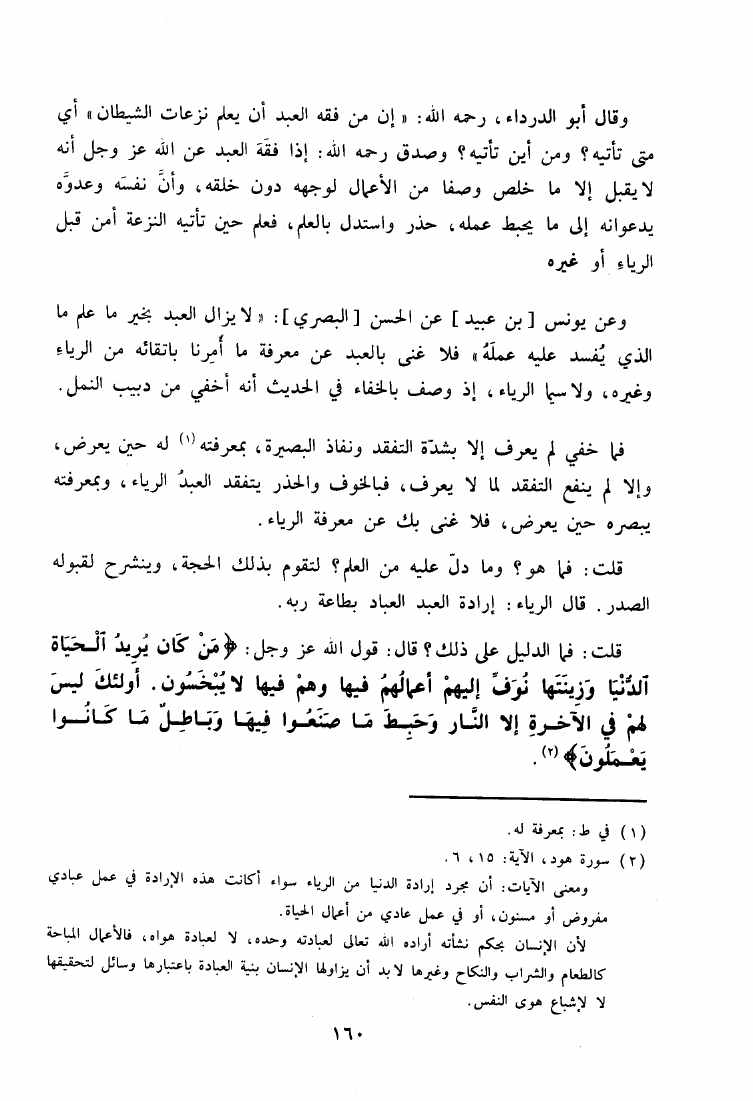 وقال أبو الدرداء، رحمه الله: «إن من فقه العبد أن يعلم نزعات الشيطان» أي
متى تأتيه؟ ومن أين تأتيه؟ وصدق رحمه الله: إذا فقَهَ العبد عن الله عز وجل أنه
لا يقبل إلا ما خلص وصفا من الأعمال لوجهه دون خلقه، وأنَّ نفسَه وعدوَّه
يدعوانه إلى ما يحبط عمله، حذر واستدل بالعلم، فعلم حين تأتيه النزعة أمن قبل
الرياء أو غيره
وعن يونس [بن عبيد] عن الحسن [البصري]: «لا يزال العبد بخير ما علم ما
الذي يُفسد عليه عملَهُ» فلا غنى بالعبد عن معرفة ما أُمِرنا باتقائه من الرياءِ
وغيره، ولا سيما الرياء، إذ وصف بالخفاء في الحديث أنه أخفي من دبيب النمل.
فما خفي لم يعرف إلا بشدّة التفقد ونفاذ البصيرة، بمعرفته (١) له حين يعرض،
وإلا لم ينفع التفقد لما لا يعرف، فبالخوف والحذر يتفقد العبدُ الرياء، وبمعرفته
يبصره حين يعرض، فلا غنى بك عن معرفة الرياء.
قلت: فما هو؟ وما دلّ عليه من العلم؟ لتقوم بذلك الحجة، وينشرح لقبوله
الصدر. قال الرياء: إرادة العبد العباد بطاعة ربه.
قلت: فما الدليل على ذلك؟ قال: قول الله عز وجل: ﴿مَنْ كَان يُرِيدُ ٱلْحَيَاة
ٱلدُّنْيَا وَزِينَتَها نُوَفِّ إليهمْ أعمالَهُمُ فيها وهمْ فيها لا يُبْخَسُون. أولئكَ ليسَ
لهمْ في الآخرةِ إلا النَّار وَحَبِطَ مَا صنَعُوا فِيهَا وَبَاطِلٌ مَا كَانُوا
يَعْمَلُونَ﴾ (٢).
(١) في ط: بمعرفة له.
(٢) سورة هود، الآية: ١٥، ٦.
ومعنى الآيات: أن مجرد إرادة الدنيا من الرياء سواء أكانت هذه الإرادة في عمل عبادي
مفروض أو مسنون، أو في عمل عادي من أعمال الحياة.
لأن الإنسان بحكم نشأته أراده الله تعالى لعبادته وحده، لا لعبادة هواه، فالأعمال المباحة
كالطعام والشراب والنكاح وغيرها لا بد أن يزاولها الإنسان بنية العبادة باعتبارها وسائل لتحقيقها
لا لإشباع هوى النفس.
١٦٠